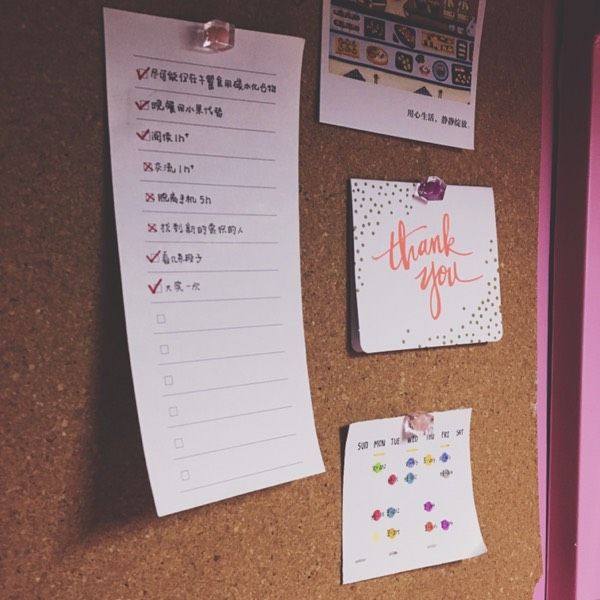 尽可能仅在午餐食用碳水化合物
晚餐用水果代替
阅读1h⁺
交流1h⁺
脱离手机5h
找到新的赏识的人
看几条段子
大笑一次
用心生活，静静绽放。
thank
you
SUN MON TUE WED THU FRI SAT